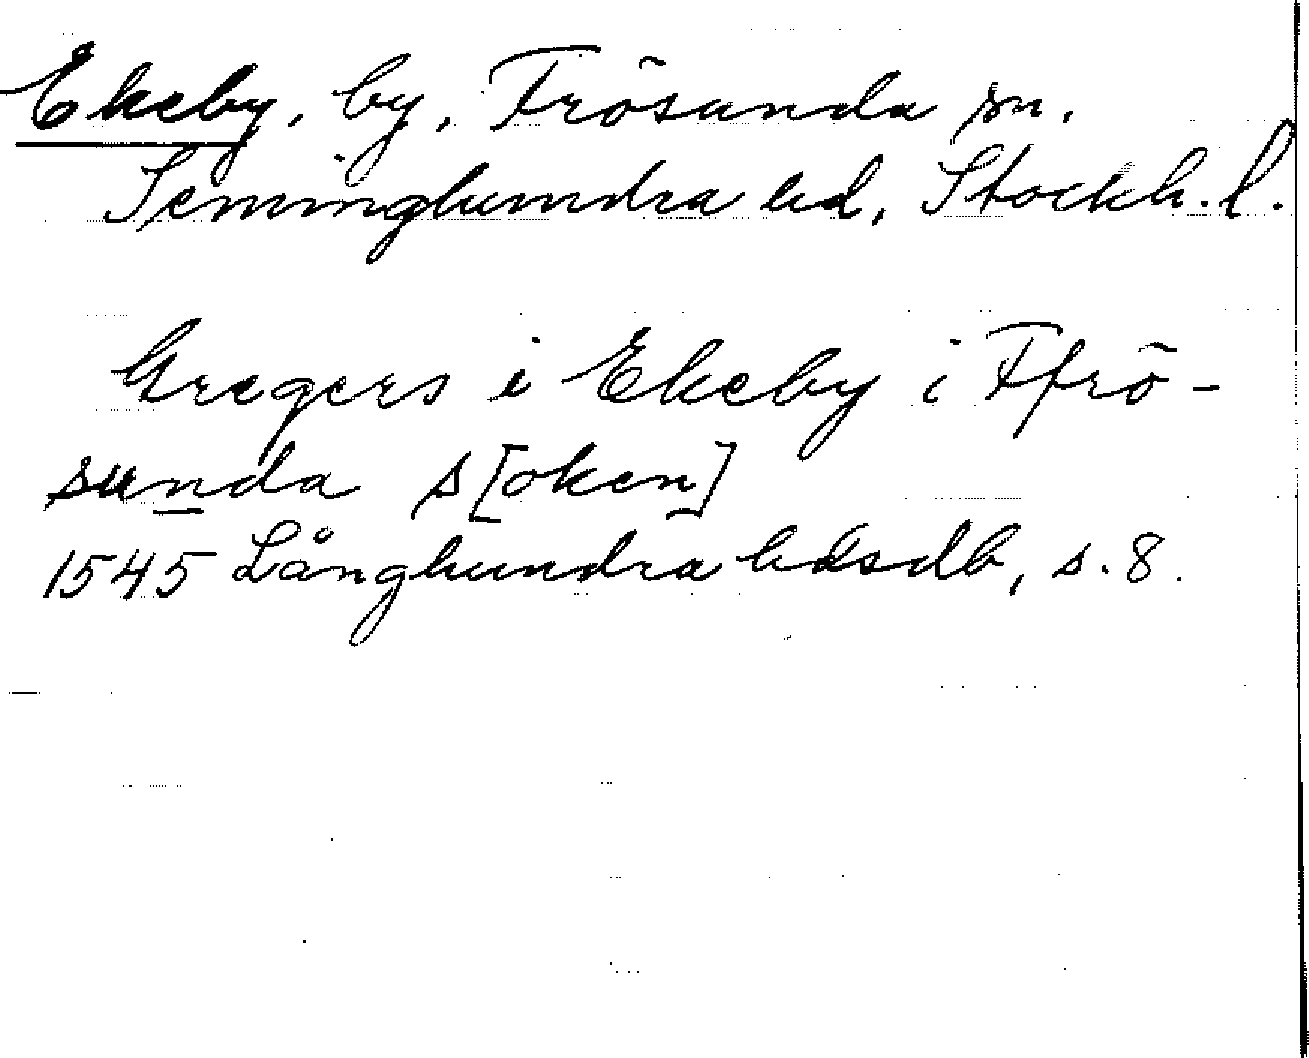 Ekeby, by, Frösunda sn.
Seminghundra hd, Stockh. l.
Gregers i Ekeby i Ffrö-
sunda s[oken]
1545 Långhundra hdsdb, s. 8.